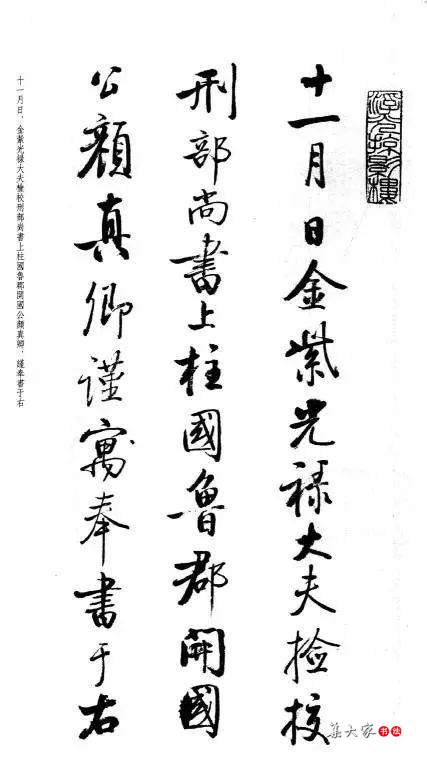 十一月日金紫光禄大夫撿挍
刑部尚書上柱國魯郡開國
公顔真卿謹寓奉書于右
十一月日，金紫光禄大夫檢校刑部尚書上柱國魯郡開國公顔真卿，謹奉書于右
集大家书法